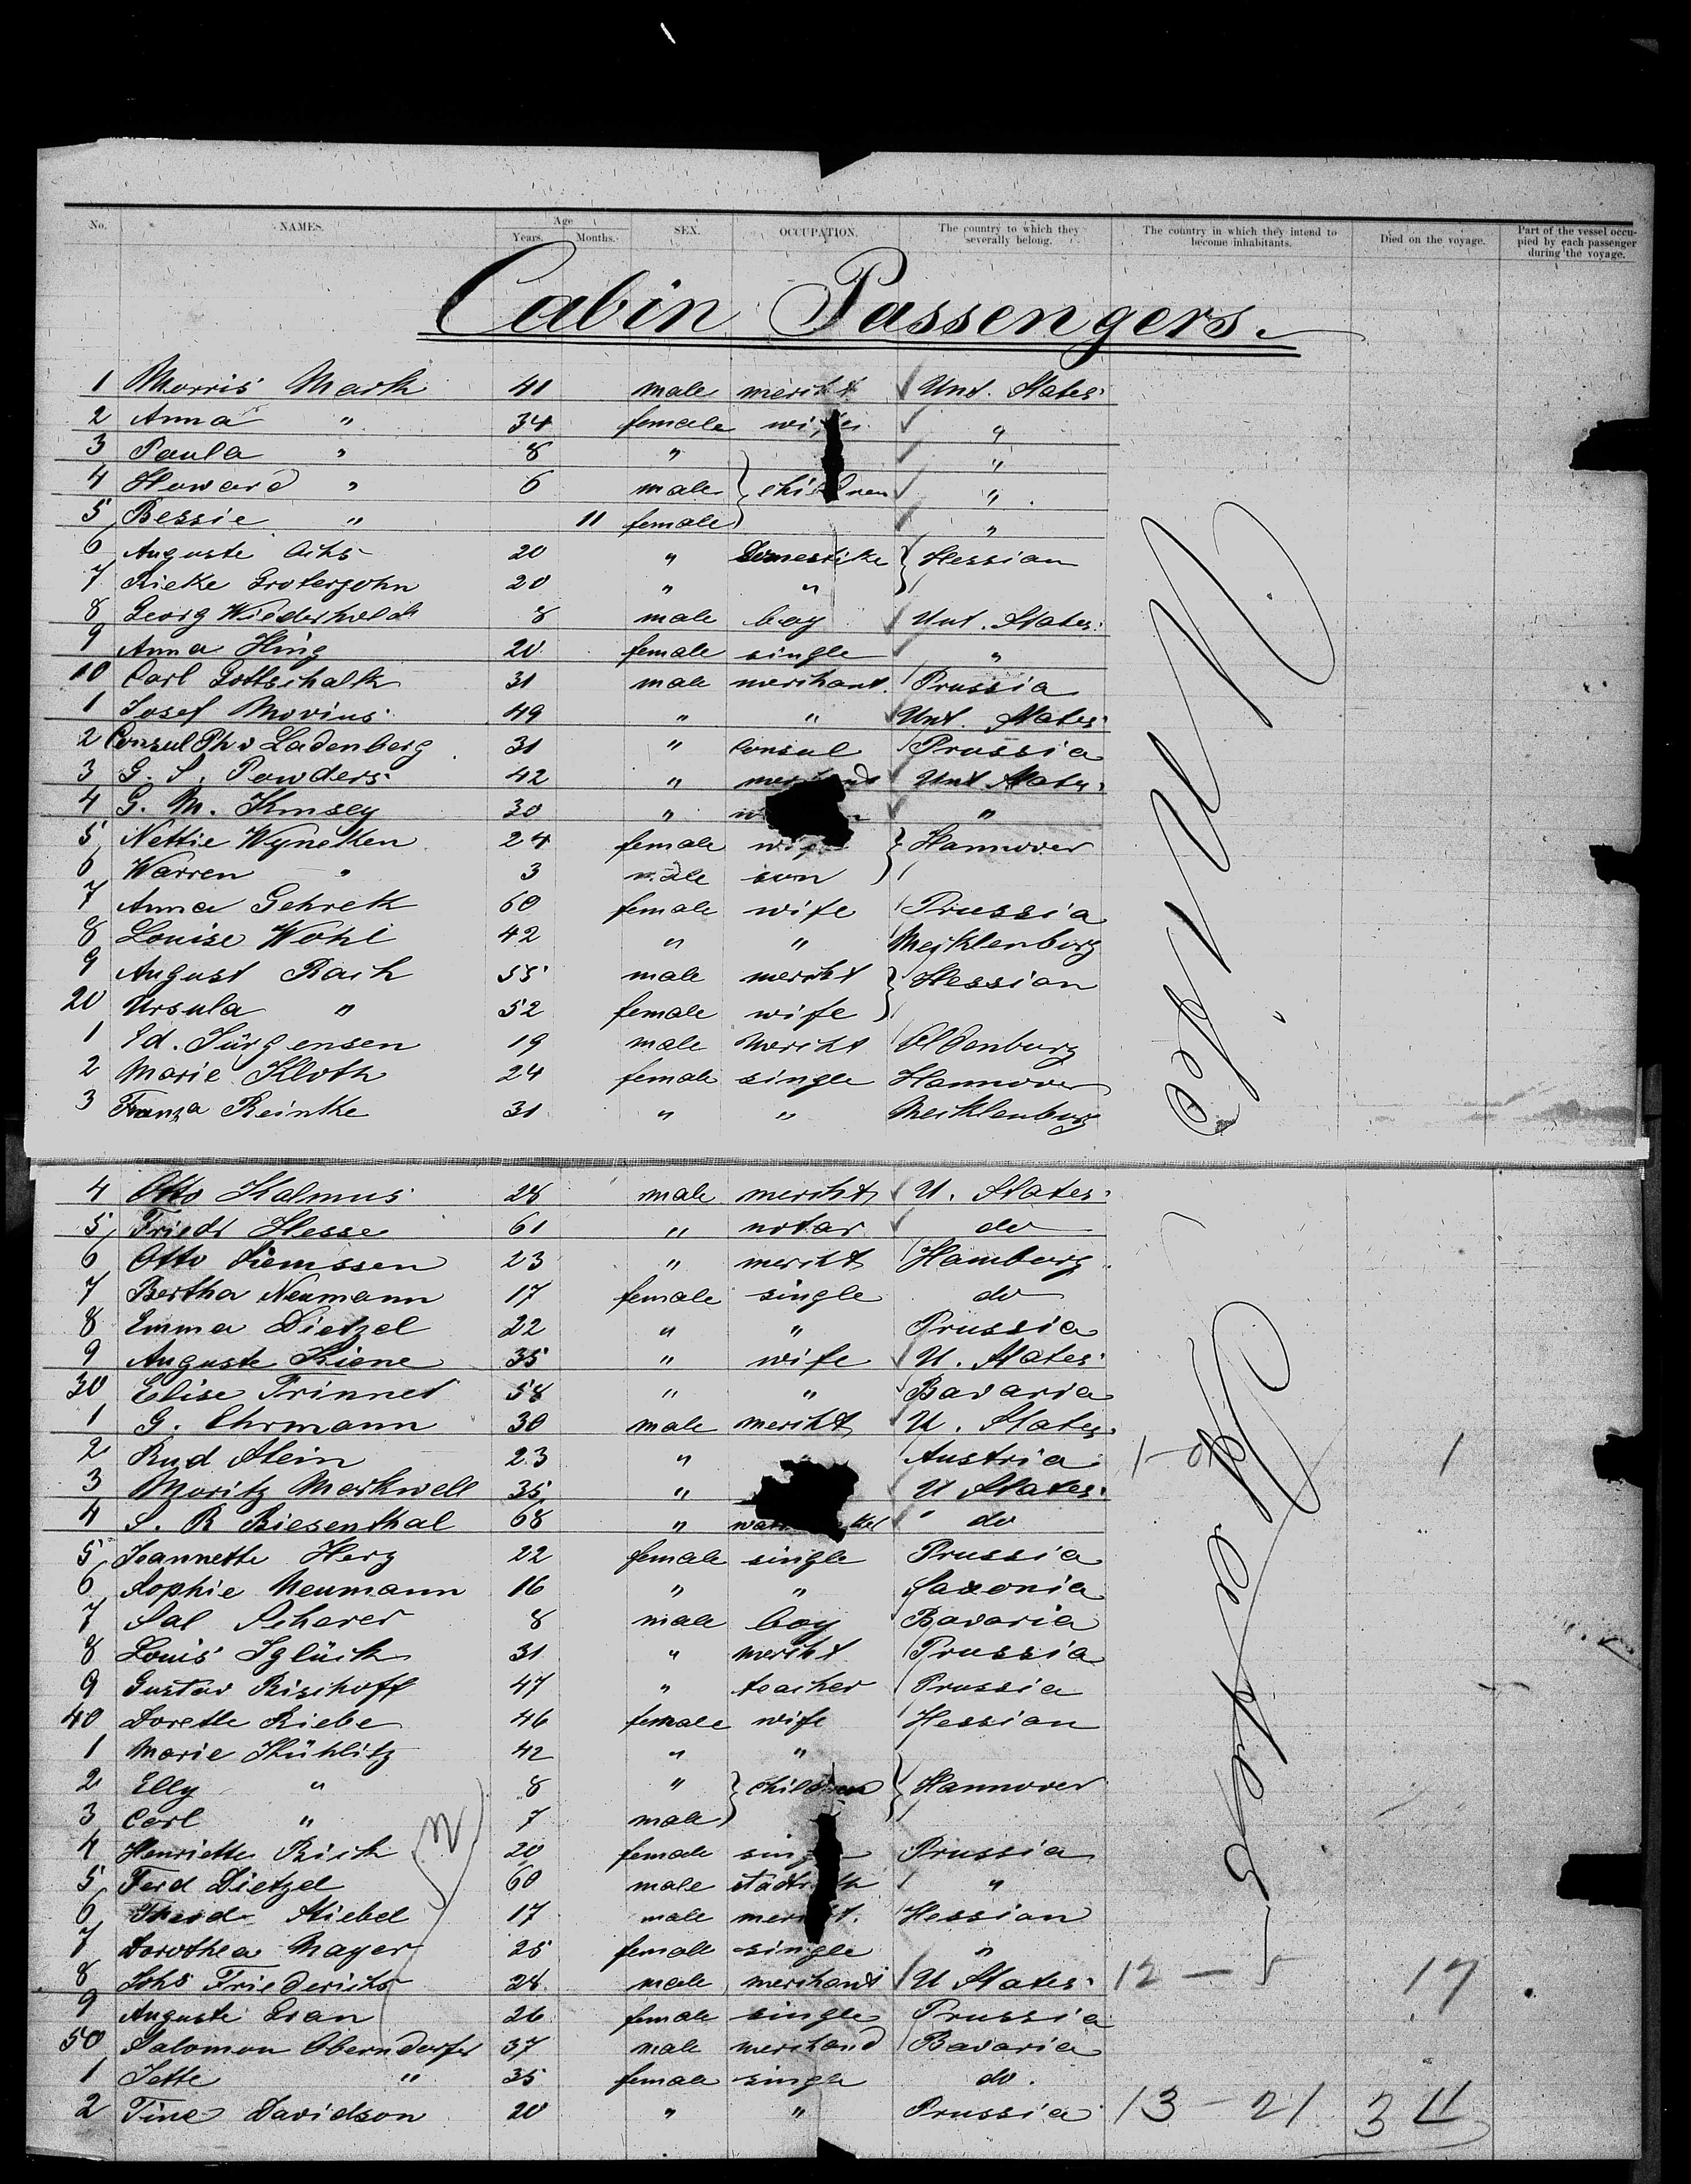 No. NAMES. Age Years. Months. SEX. OCCUPATION. The country to which they severally belong. The country in which they intend to become inhabitants. Died on the voyage. Part of the vessel occupied by each passenger during the voyage.
Cabin Passengers.
1 Morris Mark 41 male mercht Unt. States
2 Anna " 34 female wife "
3 Paula " 8 " "
4 Howard " 6 male children "
5 Bessie " 11 female "
6 Auguste 20 " Domestike Hessian
7 Rieke Grotejohn 20 " "
8 Georg Wiederhold 8 male boy Unt. States
9 Anna Hing 20 female single "
10 Carl Gottschalk 31 male merchant Prussia
1 Josef Movius 49 " " Unt. States
2 Consul Ph v Ladenberg 31 " Consul Prussia
3 G. S. Powders 42 " Unt States
4 G. M. Kimsey 30 " "
5 Nettie Wyneken 24 female wife Hannover
6 Warren " 3 male son
7 Anna Gehrck 60 female wife Prussia
8 Louise Wohl 42 " " Mecklenburg
9 August Rach 55 male mercht Hessian
20 Ursula " 52 female wife
1 Ed. Jürgensen 19 male mercht Oldenburg
2 Marie Kloth 24 female single Hannover
3 Franza Reinke 31 " " Mecklenburg
4 Otto Kalmus 28 male mercht U. States
5 Friedr Hesse 61 " notar do
6 Otto Siemssen 23 " mercht Hamburg
7 Bertha Neumann 17 female single do
8 Emma Dietzel 22 " " Prussia
9 Auguste Kiene 35 " wife U. States
30 Elise Trinnet 58 " " Bavaria
1 G. Ehrmann 30 male mercht U. States
2 Rud Stein 23 " Austria 1 1
3 Moritz Markwell 35 " U States
4 S. R Biesenthal 68 " do
5 Jeannette Herz 22 female single Prussia
6 Sophie Neumann 16 " " Saxonia
7 Sal Scherer 8 male boy Bavaria
8 Louis Iglück 31 " mercht Prussia
9 Gustav Bischoff 47 " teacher Prussia
40 Dorette Riebe 46 female wife Hessian
1 Marie Kühlitz 42 " "
2 Elly " 8 " children Hannover
3 Carl " 7 male
4 Henriette Rich 20 female Prussia
5 Ferd Dietzel 60 male "
6 Theod Stiebel 17 male mercht. Hessian
7 Dorothea Mayer 25 female single "
8 Johs Friederichs 28 male merchant U States 12 - 5 17
9 Auguste 26 female single Prussia
50 Salomon Oberndorfer 37 male merchand Bavaria
1 Jette " 35 female single do.
2 Tine Davidson 20 " " Prussia 13 - 21 34